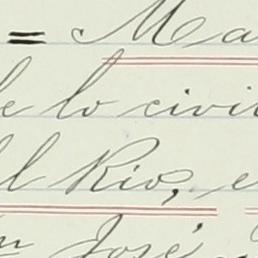 = Ma
de lo civil
el Rio, e
n José